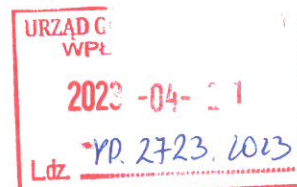 URZĄD G
WPŁ
2023 -04- 1
Ldz. YP. 2723. 2023